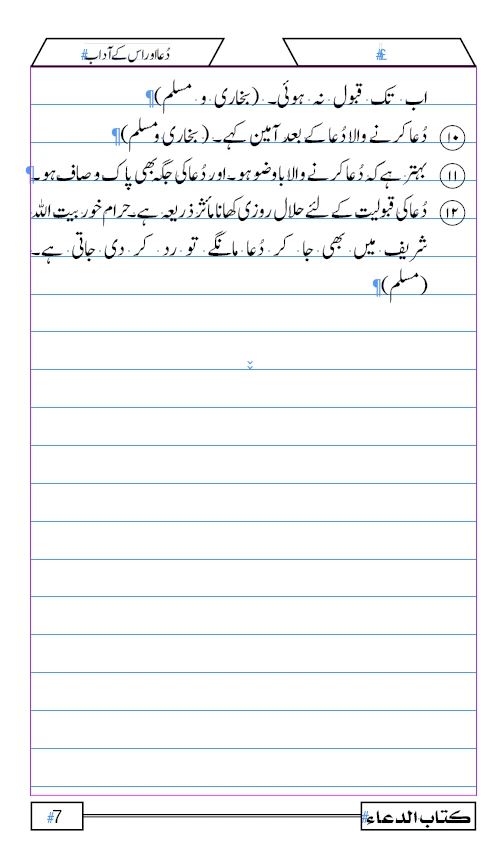 دُعا اور اس کے آداب#
#£
اب تک قبول نہ ہوئی۔ (بخاری و مسلم)¶
۱۰ دُعا کرنے والا دُعا کے بعد آمین کہے۔ (بخاری و مسلم)¶
۱۱ بہتر ہے کہ دُعا کرنے والا باوضو ہو۔ اور دُعا کی جگہ بھی پاک و صاف ہو۔¶
۱۲ دُعا کی قبولیت کے لئے حلال روزی کھانا مأثر ذریعہ ہے۔ حرام خور بیت اللہ
شریف میں بھی جا کر دُعا مانگے تو رد کر دی جاتی ہے۔
(مسلم)¶
#7
کتاب الدعاء#